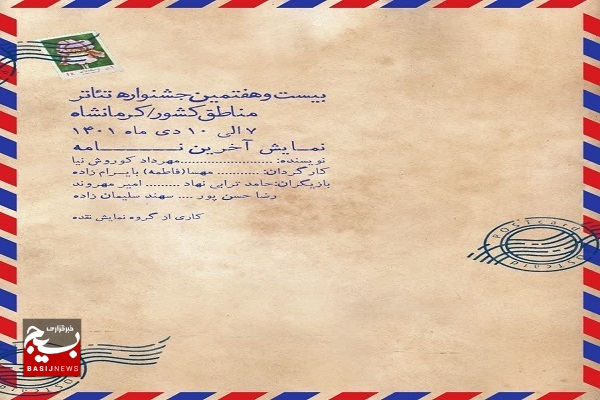 بیست و هفتمین جشنواره تئاتر
مناطق کشور/کرمانشاه
۷ الی ۱۰ دی ماه ۱۴۰۱
نمایش آخرین نـــــــامه
نویسنده: ......................مهرداد کوروش نیا
کارگردان: .......... مهسا(فاطمه) بایرام زاده
بازیگران:حامد ترابی نهاد ......... امیر مهروند
رضا حسن پور .... سهند سلیمان زاده
کاری از گروه نمایش نقده
POSTCARD
POSTCARD
خبرگزاری
بسیج
BASIJNEWS